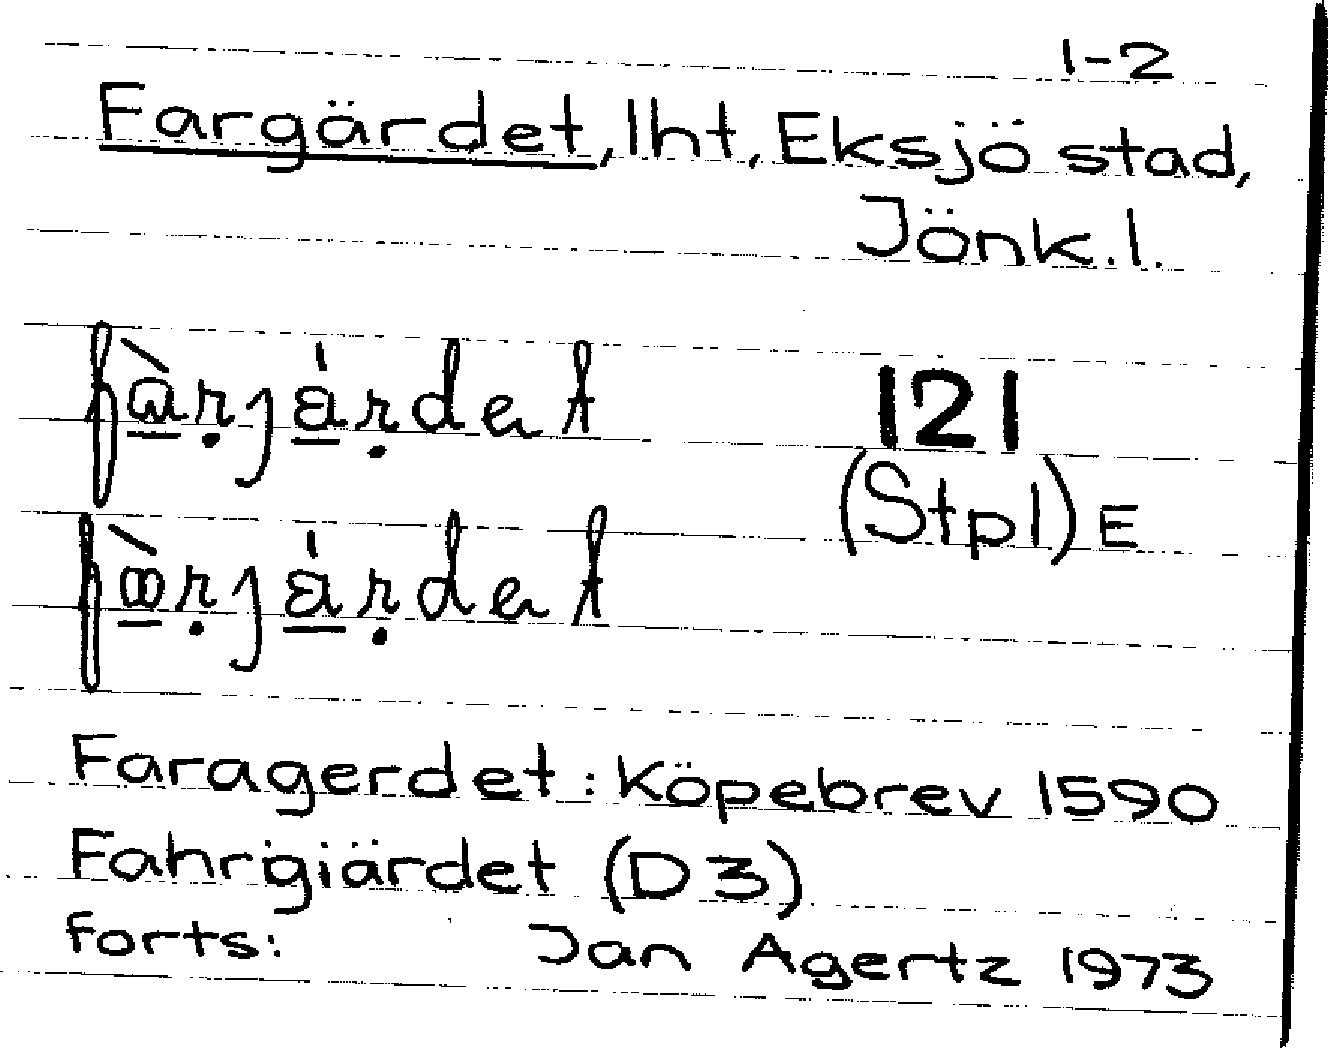 1-2
Fargärdet, lht, Eksjö stad,
Jönk.l.
fàrjárdet 121
(Stpl) E
fàrjárdet
Faragerdet: Köpebrev 1590
Fahrgiärdet (D3)
Forts: Jan Agertz 1973